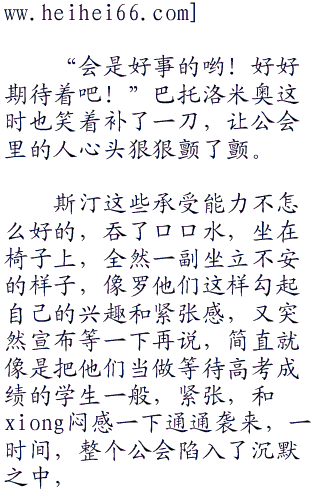 ww.heihei66.com]
“会是好事的哟！好好
期待着吧！”巴托洛米奥这
时也笑着补了一刀，让公会
里的人心头狠狠颤了颤。
斯汀这些承受能力不怎
么好的，吞了口口水，坐在
椅子上，全然一副坐立不安
的样子，像罗他们这样勾起
自己的兴趣和紧张感，又突
然宣布等一下再说，简直就
像是把他们当做等待高考成
绩的学生一般，紧张，和
xiong闷感一下通通袭来，一
时间，整个公会陷入了沉默
之中，